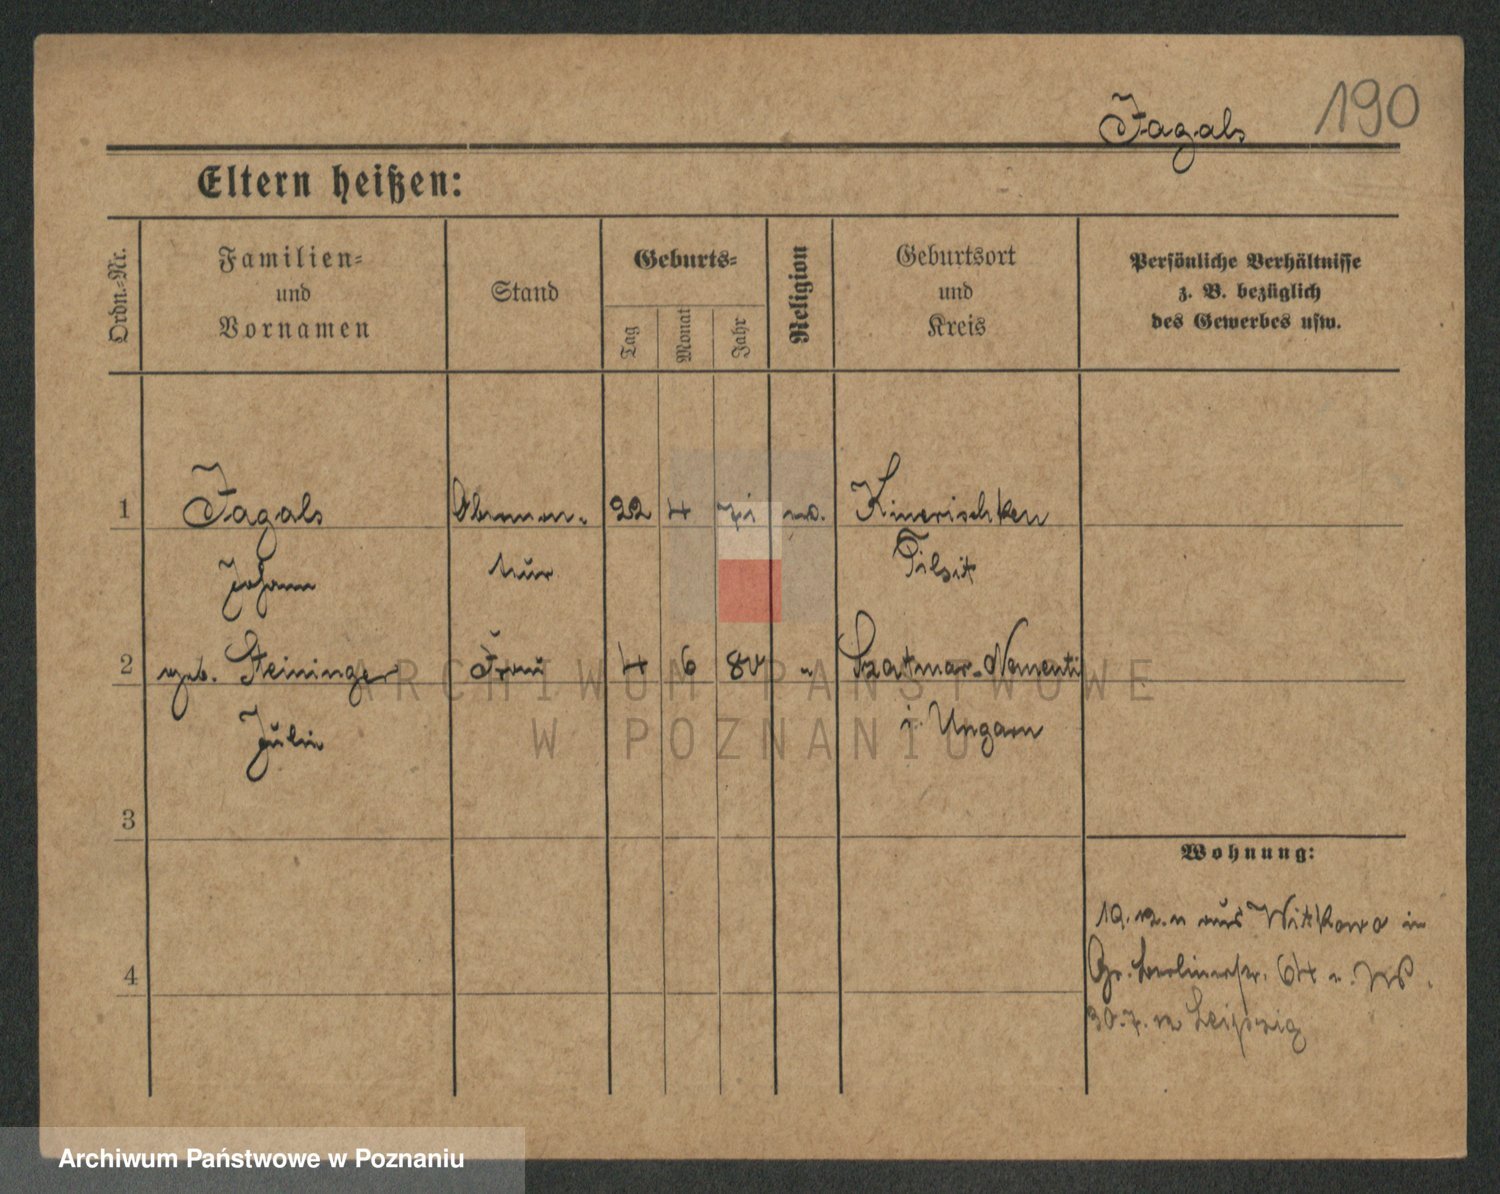 190
Jagals
Eltern heißen:
Ordn.-Nr.
Familien-
und
Vornamen
Stand
Geburts-
Tag
Monat
Jahr
Religion
Geburtsort
und
Kreis
Persönliche Verhältnisse
z. B. bezüglich
des Gewerbes usw.
1 Jagals 22 4
Johann Tilsit
2 geb. Steininger Frau 4 6 80 " Szatmar-Nementi
Julie i. Ungarn
3
4
Wohnung:
aus Witkowo in
Gr. Berlinerstr. 64
30.7.12 Leipzig
ARCHIWUM PAŃSTWOWE
W POZNANIU
Archiwum Państwowe w Poznaniu